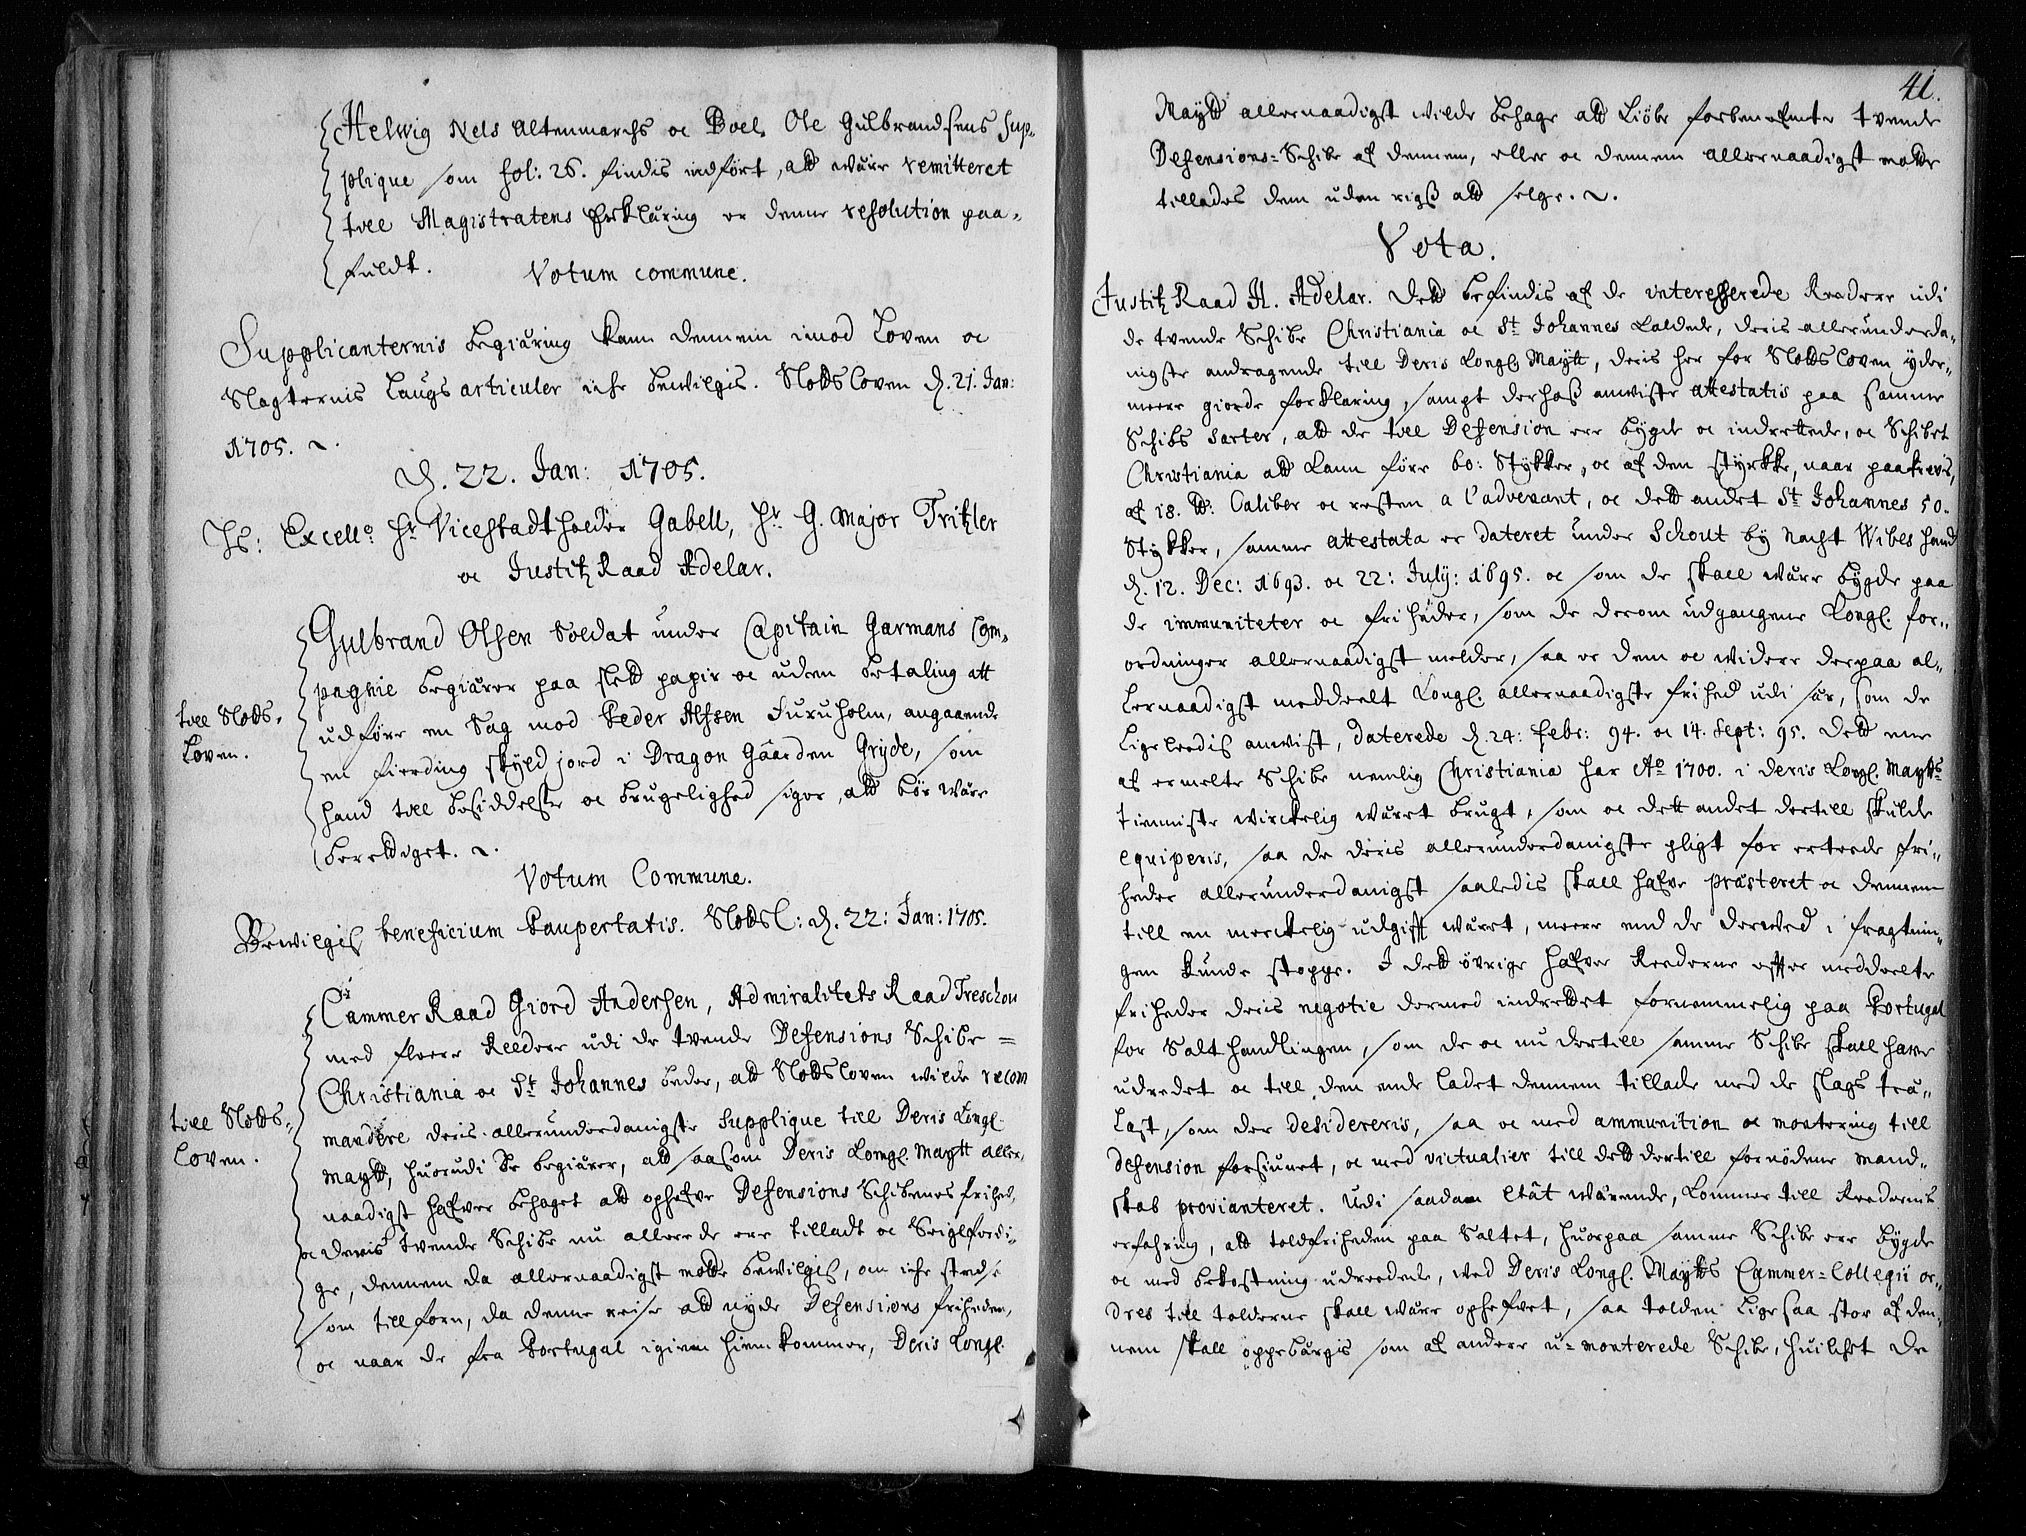 Helwig Nels Altenmarchs oc Boel Ole Gulbrandsens Sup-
plique som fol: 26. findis indført, att wære remitteret
till Magistratens Erklæring er denne resolution paa-
fuldt. Votum commune.
Supplicanternis begiæring kand dennem imod Loven oc
Slagternis Laugs articuler iche bewilgis. Slottsloven d. 21. Jan:
1705.
d. 22. Jan: 1705.
Hs: Excell. Hr Vicestadtholder Gabell, Hr G. Major Tritzler
oc Justitz Raad Adelar.
Gulbrand Olsen Soldat under Capitain Garmans Com-
pagnie begiærer paa slett papir oc uden betaling att
till Slotts-
Loven.
udføre en Sag mod Peder Alfsen Furuholm, angaaende
en fierding skyld jord i Dragon Gaarden Gryde, som
hand till besiddelse oc brugelighed siger, att bør wære
berettiget.
Votum Commune.
Bewilgis beneficium Paupertatis. Slottsl: d. 22: Jan: 1705.
Cammer Raad Giord Andersen, Admiralitets Raad Treschou
med fleere Reedere udi de tvende Defensions Schibe
Christiania oc St Johannes beder, att Slottsloven wilde recom
till Slotts-
Loven.
mandere deris allerunderdanigste Supplique till Deris Kongl.
Maytt, huorudi de begiærer, att saasom Deris Kongl. Maytt aller-
naadigst hafver behaget att ophefve Defensions Schibenes frihed,
oc deris tvende Schibe nu allerede ere tilladt oc Seiglferdi-
ge, dennem da allernaadigst motte bewilgis, om iche strax
som tillforn, da denne reise att nyde Defensions friheden,
oc naar de fra Portugal igien hiemkommer, Deris Kongl.
41.
Maytt allernaadigst wilde behage att kiøbe forbenefnte tvende
Defensions-Schibe af dennem, eller oc dennem allernaadigst motte
tillades dem uden rigs att selge.
Vota.
Justitz Raad H. Adelar. Dett befindis af de interesserede Reedere udi
de tvende Schibe Christiania oc St Johannes kaldede, deris allerunderda-
nigste andragende till Deris Kongl. Maytt, deris her for Slottsloven yder-
meere giorde forklaring, sampt derhos anwiste attestatis paa samme
Schibs Carter, att de till Defension ere bygde oc indrettede, oc Schibet
Christiania att kunn føre 60: Stykker, oc af den styrkke, naar paakrevis,
af 18. ℔: Caliber oc resten a l'advenant, oc dett andet St Johannes 50.
Stykker, samme attestata er dateret under Schout by Nacht Wibes haand
d. 12. Dec: 1693. oc 22: July: 1695. oc som de skall wære bygde paa
de immuniteter oc friheder, som de derom udgangene Kongl. for-
ordninger allernaadigst melder, saa er dem oc widere derpaa al-
lernaadigst meddeelt Kongl. allernaadigste frihed udi sær, som de
ligeleedis anwist, daterede d. 24: febr: 94. oc 14. Sept: 95. Dett ene
af ermelte Schibe nemlig Christiania har Ao 1700. i Deris Kongl. Maytts
tienniste wirckelig wæret brugt, som oc dett andet dertill skulde
equiperis, saa de deris allerunderdanigste pligt for erteede fri-
heder allerunderdanigst saaledis skall hafve præsteret oc dennem
till en merckelig udgift wæret, meere end de derved i fragtnin-
gen kunde stoppe. I dett øvrige hafver Reederne efter meddeelte
friheder deris negotie dermed indrettet fornemmelig paa Portugal
for Salt handlingen, som de oc nu dertill samme Schibe skall have
udredet oc till den ende ladet dennem tillade med de slags træ-
last, som der desidereris, saa oc med ammunition oc montering till
defension forsiunet, oc med victualier till dett dertill fornødene mand-
skab provianteret. Udi saadan etât wærende, kommer till Reedernis
erfahring, att toldfriheden paa Saltet, huorpaa samme Schibe ere bygde
oc med bekostning udreedede, wed Deris Kongl. Maytts Cammer-Collegii or-
dres till tolderne skall wære ophefvet, saa tolden lige saa stor af den-
nem skall oppebærgis som af andere u-monterede Schibe, huilchet de